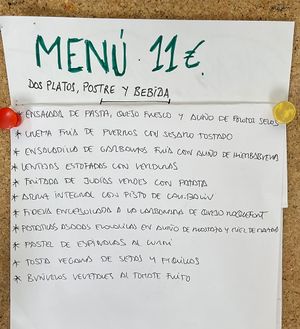 MENÚ 11€.
DOS PLATOS, POSTRE Y BEBIDA
* ENSALADA DE PASTA, QUESO FRESCO Y ALIÑO DE
* CREMA FRÍA DE PUERROS CON SÉSAMO TOSTADO
* ENSALADILLA DE GARBANZOS FRÍA CON ALIÑO DE HIERBABUENA
* LENTEJAS ESTOFADAS CON VERDURAS
* FRITADA DE JUDÍAS VERDES CON PATATA
* ARROZ INTEGRAL CON PISTO DE CALABACÍN
* FIDEUA ENCEBOLLADA A LA CARBONARA DE QUESO ROQUEFORT
* ASADAS ECOLÓGICAS EN ALIÑO DE MOSTAZA Y MIEL DE
* PASTEL DE ESPINACAS AL
* TOSTA VEGANA DE SETAS Y PIQUILLOS
* BUÑUELOS VEGETALES AL TOMATE FRITO